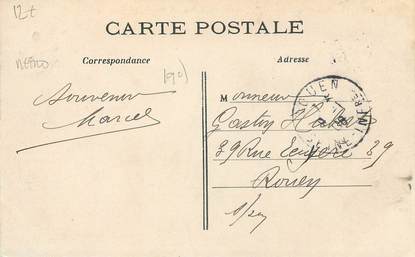 12+
CARTE POSTALE
Correspondance
Adresse
Souvenir
Marcel
Monsieur
Gaston
39 Rue 39
Rouen
ROUEN